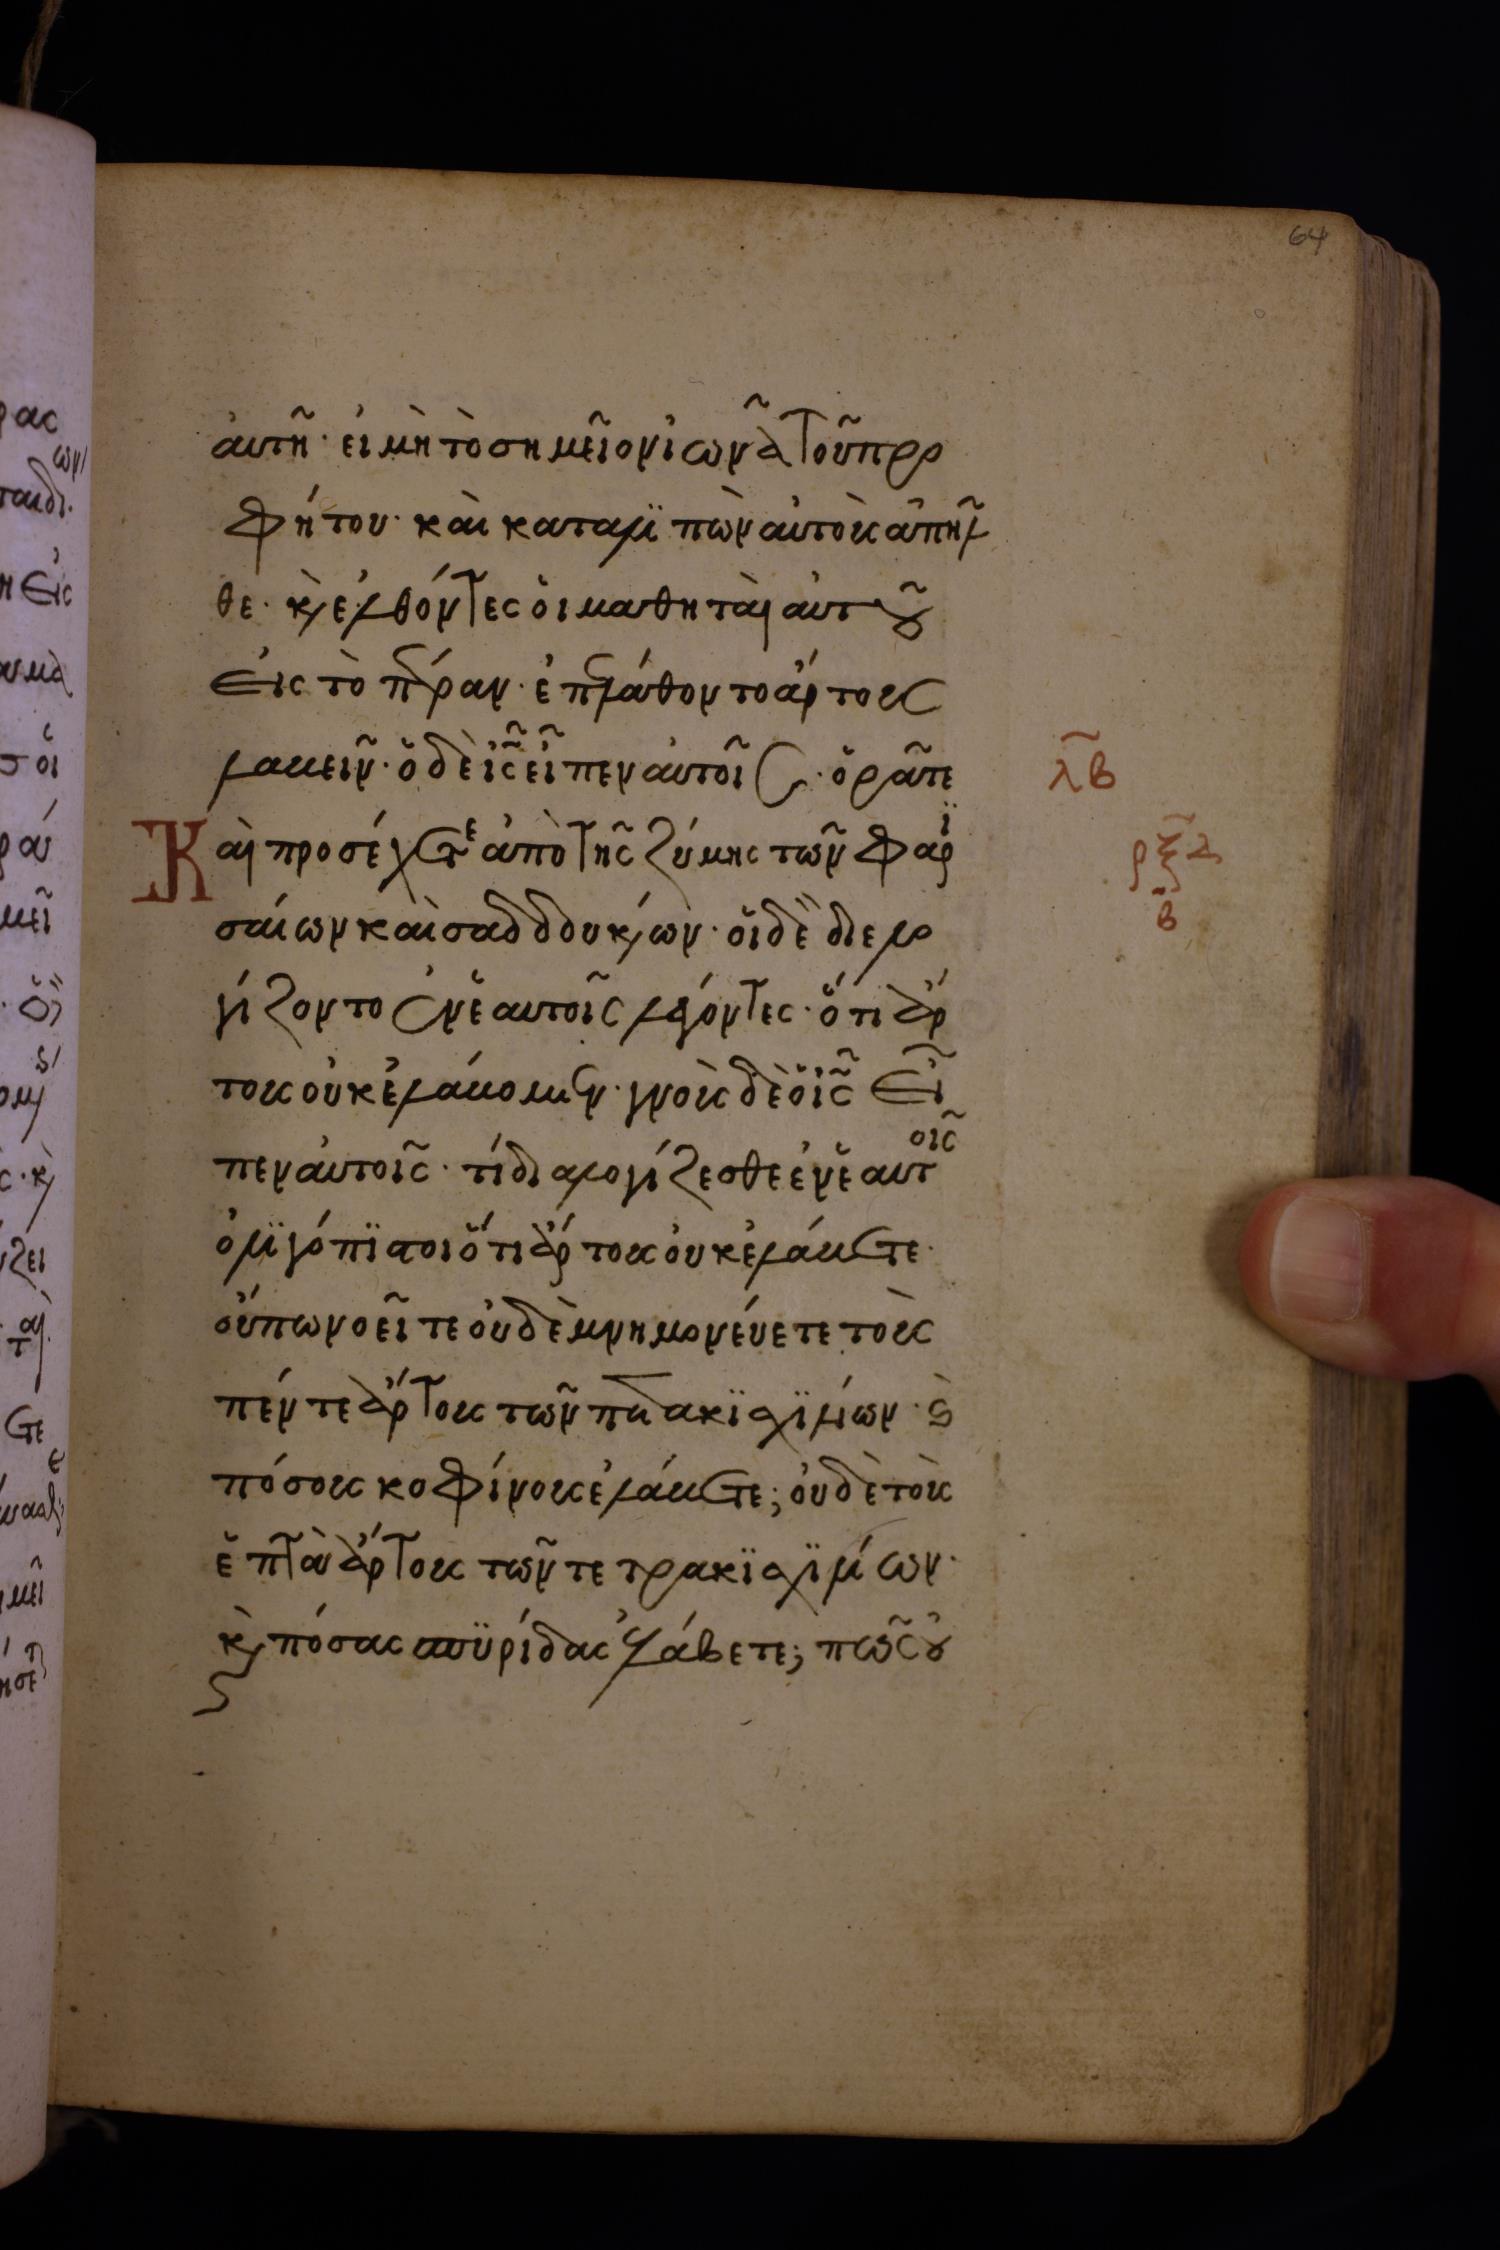 64
αὐτῆ· εἰ μὴ τὸ σημεῖον ἰωνᾶ τοῦ προ
φήτου· καὶ καταλϊπὼν αὐτοὺς ἀπῆλ
θε· κ(αὶ) ἐλθόντες ὁι μαθηταὶ αὐτοῦ
εἰς τὸ πέραν· ἐπελάθοντο ἄρτους
λαβεῖν· ὁ δὲ ι̅ς̅ εἶπεν αὐτοῖς· ὁρᾶτε
λβ
Καὶ προσέχετε ἀπὸ τῆς ζύμης τῶν Φαρϊ
ρξδ
β
σαίων καὶ σαδδουκαίων· οἱ δὲ διελο
γίζοντο ἐν ἑαυτοῖς λέγοντες· ὅτι ἄρ
τους οὐκ ἐλάβομεν· γνοὺς δὲ ὁ ι̅ς̅ εἶ
πεν αὐτοῖς· τί διαλογίζεσθε ἐν ἑαυτοῖς
ὀλϊγόπϊστοι ὅτι ἄρτους οὐκ ἐλάβετε·
οὔπω νοεῖτε οὐδὲ μνημονεύετε τοὺς
πέντε ἄρτους τῶν πεντακϊσχϊλίων· κ(αὶ)
πόσους κοφίνους ἐλάβετε; οὐδὲ τοὺς
ἑπτὰ ἄρτους τῶν τετρακϊσχϊλίων·
κ(αὶ) πόσας σπϋρίδας ἐλάβετε; πῶς οὐ